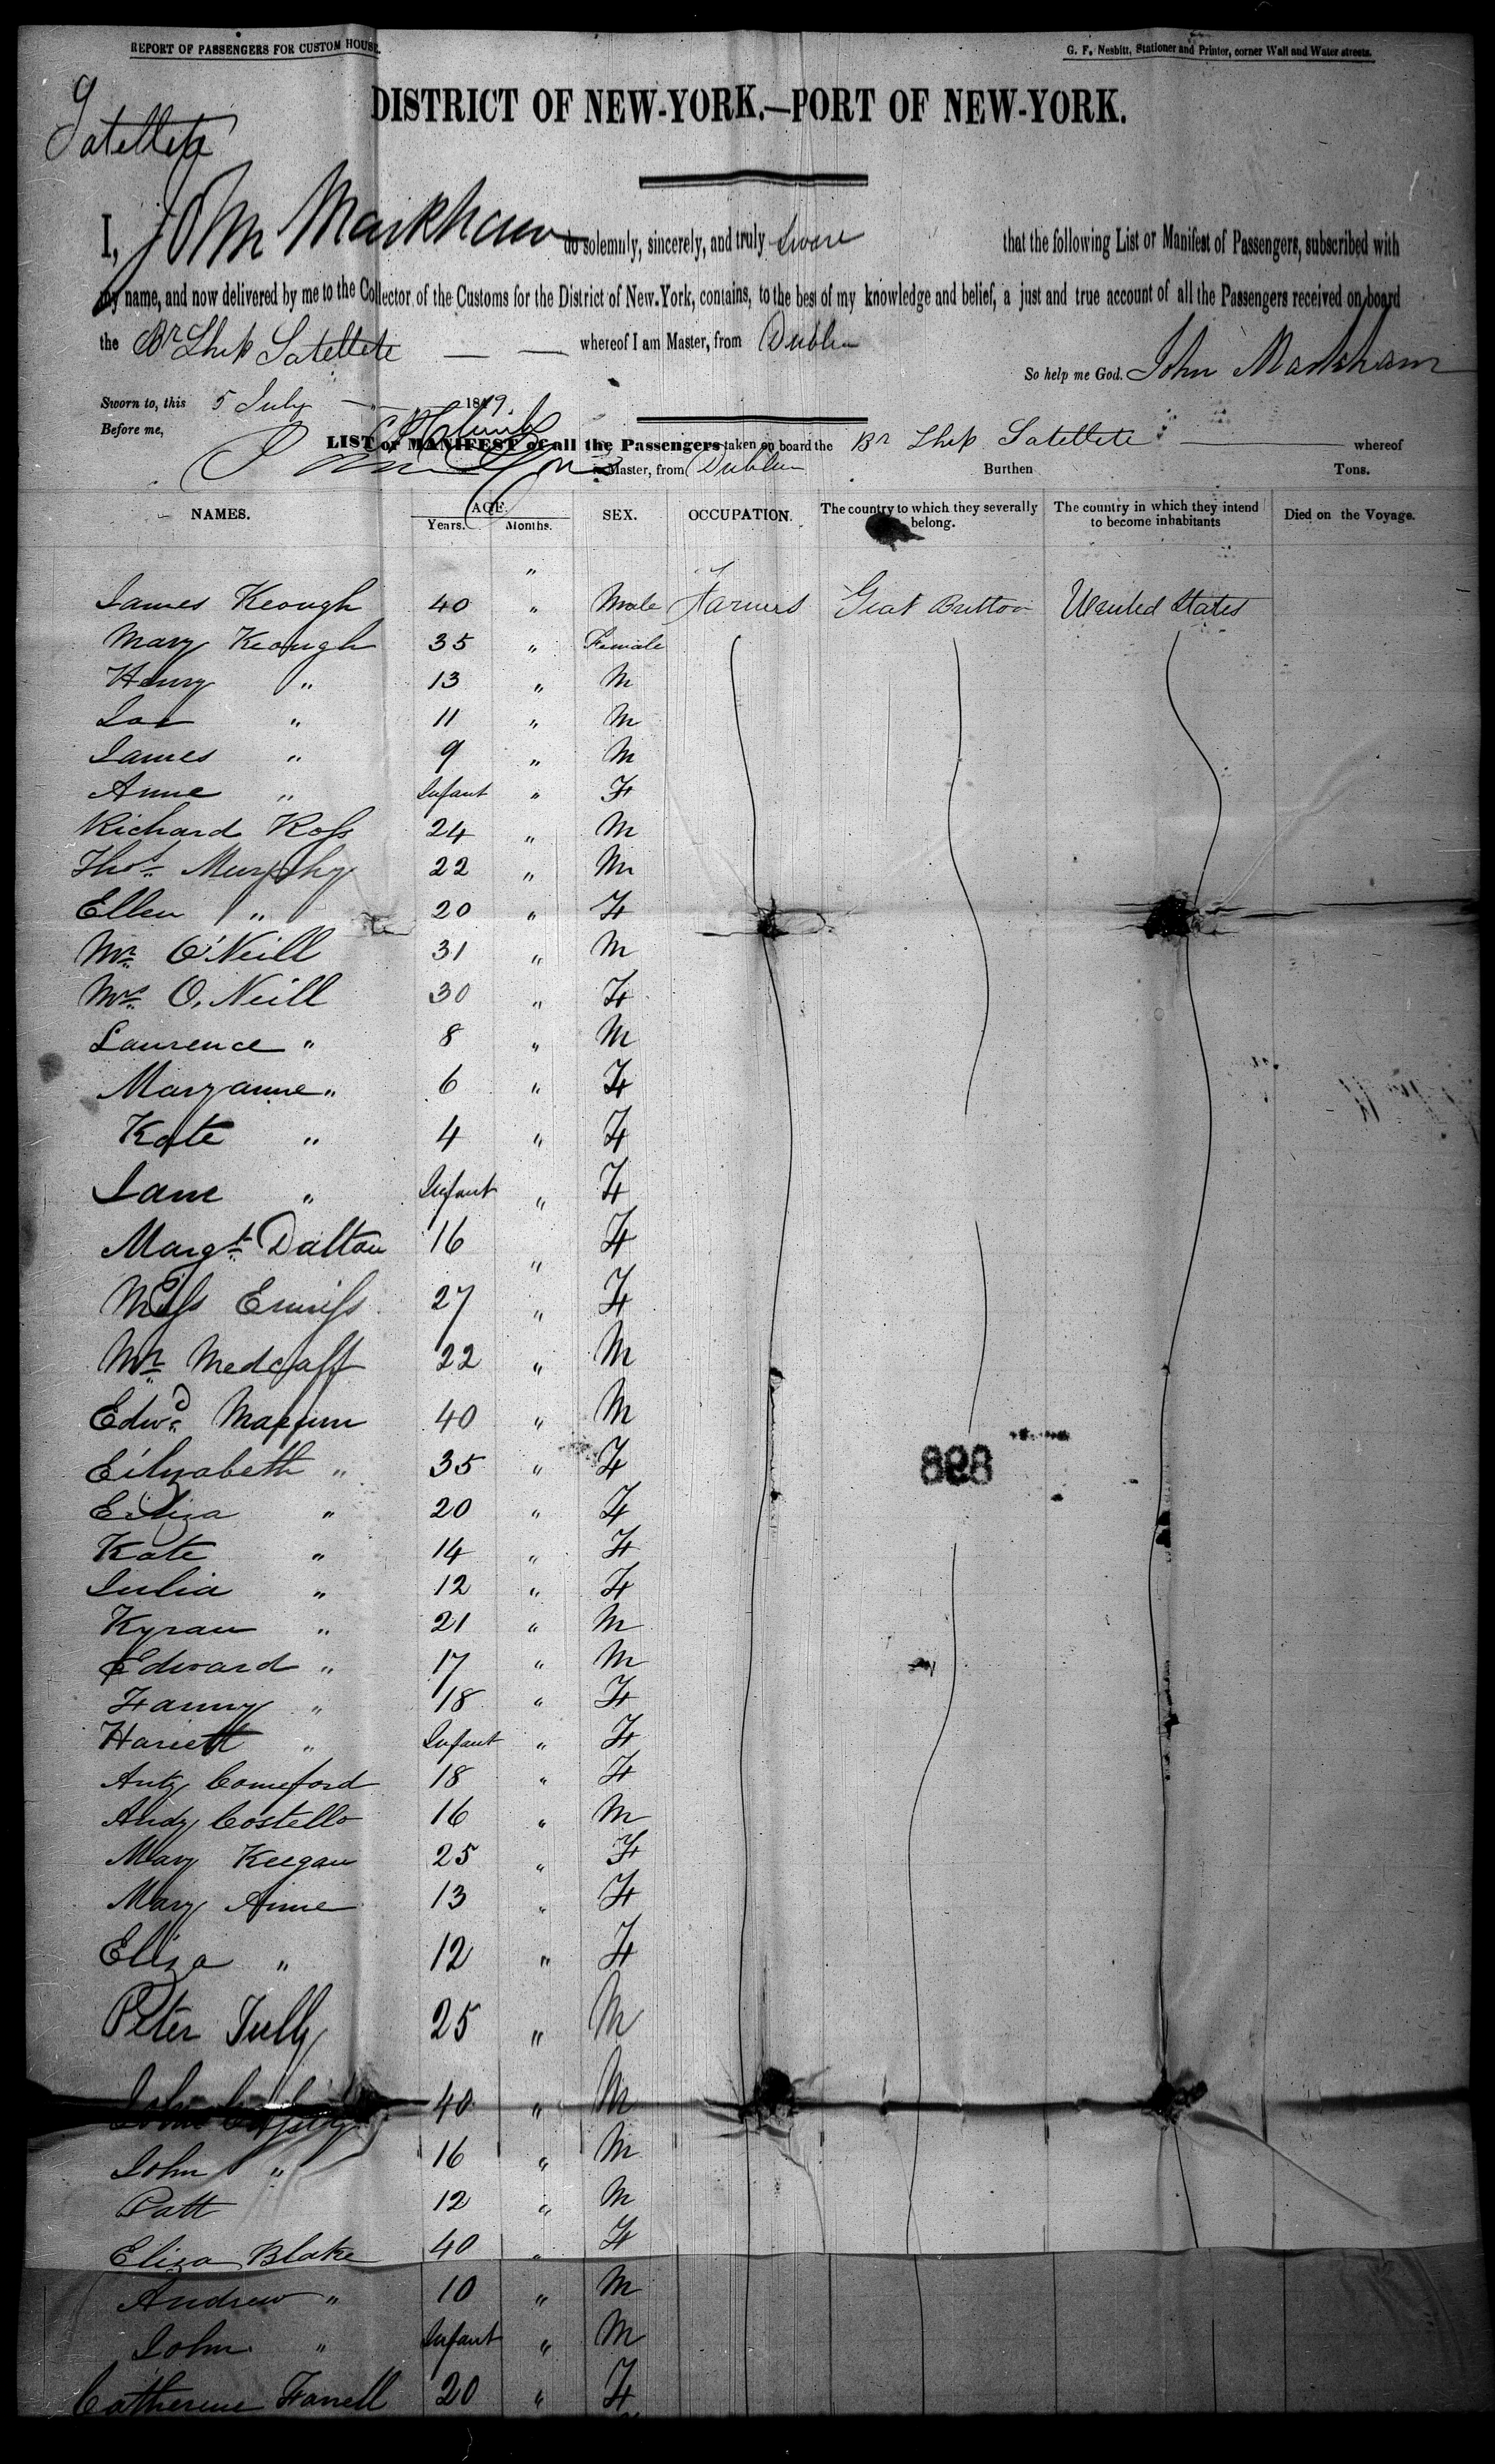 REPORT OF PASSENGERS FOR CUSTOM HOUSE.
G. F. Nesbitt, Stationer and Printer, corner Wall and Water streets.
9
Satellete
DISTRICT OF NEW-YORK.—PORT OF NEW-YORK.
I, John Markham do solemnly, sincerely, and truly Swear that the following List or Manifest of Passengers, subscribed with
my name, and now delivered by me to the Collector of the Customs for the District of New-York, contains, to the best of my knowledge and belief, a just and true account of all the Passengers received on board
the Br Ship Satellete whereof I am Master, from Dublin
So help me God. John Markham
Sworn to, this 5 July 1849.
Before me,
LIST or MANIFEST of all the Passengers taken on board the Br Ship Satellete whereof
is Master, from Dublin Burthen Tons.
NAMES. AGE. Years. Months. SEX. OCCUPATION. The country to which they severally belong. The country in which they intend to become inhabitants Died on the Voyage.
"
James Keough 40 " Male Farmers Great Britton United States
Mary Keough 35 " Female
Henry " 13 " M
" 11 " M
James " 9 " M
Anne " Infant " F
Richard Ross 24 " M
Thos. Murphy 22 " M
Ellen " 20 " F
Mr. O'Neill 31 " M
Mrs. O,Neill 30 " F
Laurence " 8 " M
Maryanne " 6 " F
Kate " 4 " F
Jane " Infant " F
Margt. Dalton 16 " F
Miss Enniss 27 " F
Mr. Medcalf 22 " M
Edwd. 40 " M
Eilizabeth " 35 " F
Eliza " 20 " F
Kate " 14 " F
Julia " 12 " F
Kyran " 21 " M
Edward " 17 " M
Fanny " 18 " F
Hariett " Infant " F
Anty Comeford 18 " F
Andy Costello 16 " M
Mary Keegan 25 " F
Mary Anne 13 " F
Eliza " 12 " F
Peter Tully 25 " M
John 40 " M
John " 16 " M
Patt 12 " M
Eliza Blake 40 " F
Andrew " 10 " M
John " Infant " M
Catherine Farrell 20 " F
898